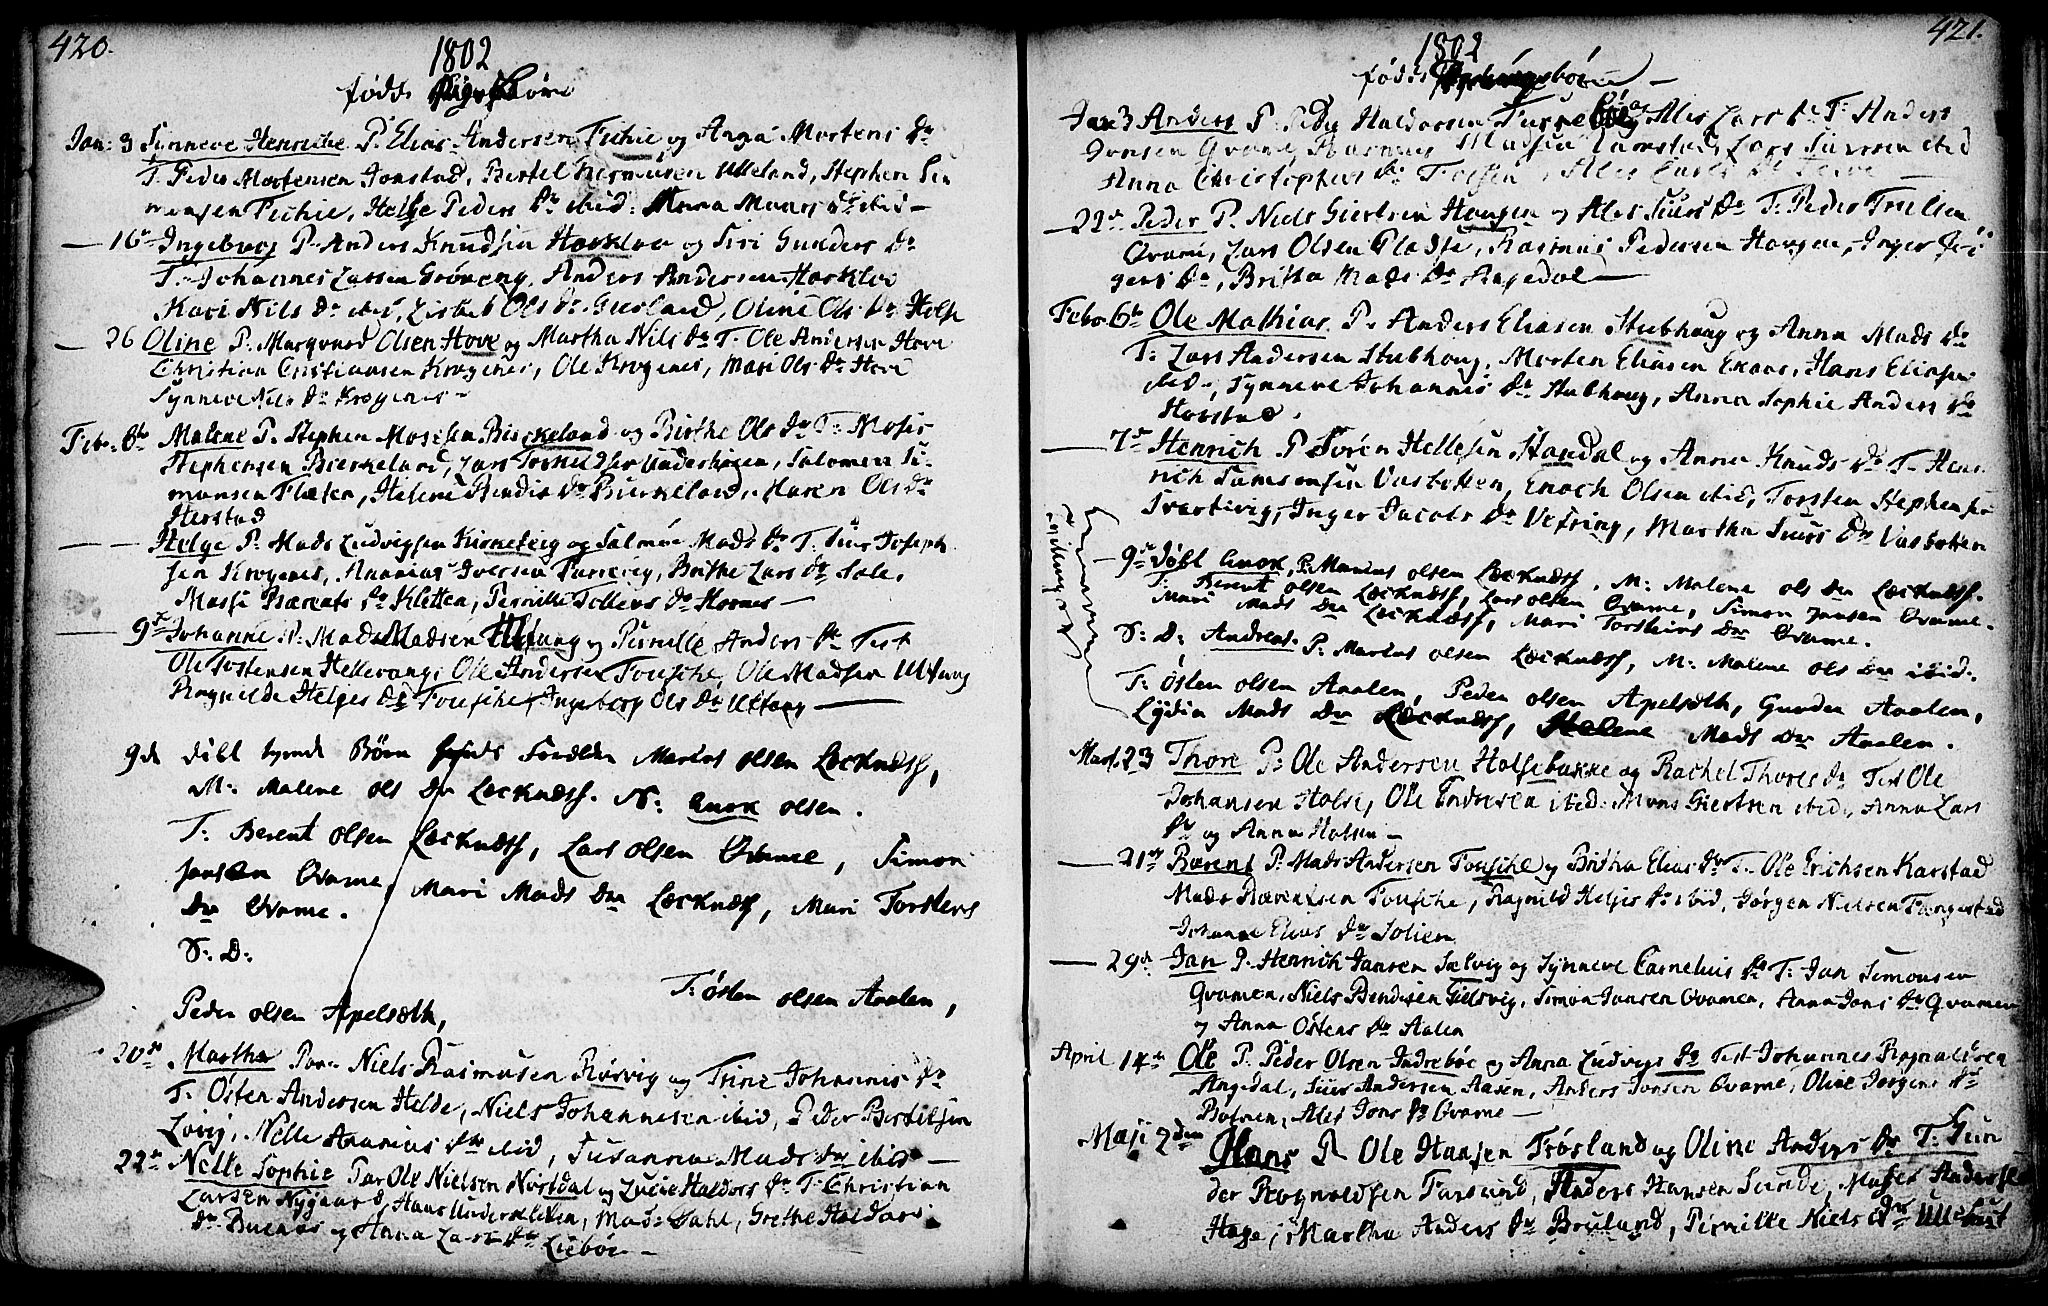 420.
1802
føds
Jan: 3 Synneve Henriche P. Elias Andersen Tichie og Anna Mortens Dr
T. Peder Mortensen Jonstad, Bertel Rasmusen Ulleland, Stephen Si
monsen Tichie, Helge Peders Dr ibid: Anna Mons Dr ibid —
— 16 Ingeborg P. Anders Knudsen Horklov og Siri Gunders Dr
T. Johannes Larsen Grøneng, Anders Andersen Horklov
Kari Nils Dr ibid, Lisbet Ols Dr Gierland, Oline Ols Dr Holse
— 26 Oline P. Marqvard Olsen Hove og Martha Nils Dr T. Ole Andersen Hove
Christian Cristiansen Krogenes, Ole Krogenes, Mari Ols Dr Hove
Synneve Nils Dr Krogenes —
Febr. 6te Malene P. Stephen Mosesen Bierkeland og Birthe Ols Dr T. Moses
Stephensen Bierkeland, Lars Torkildsen Underhougen, Salomon Si-
monsen Flaten, Helene Dr Bierkeland, Maren Ols Dr
Herstad
— Helge P. Mads Ludvigsen Kirketeig og Salmine Mads Dr T. Siur Joseph
sen Krogenes, Ananias Iversen, Brithe Lars Dr Sole,
Massi Dr Kletten, Pernille Tollevs Dr Hornes —
— 9de Johanne P. Mads Madsen Ulltang og Pernille Anders Dr Test
Ole Tostensen Hellevang, Ole Andersen Tousche, Ole Madsen Ulltang
Ragnilde Helges Dr Tousche, Ingeborg Ols Dr Ulltang —
9de døbt Børn Forældre Marius olsen Lecknæss,
M: Malene ols Dr Lecknæss. N: Enok olsen.
T: Berent olsen Lecknæss, Lars olsen Qvame, Simon
Jansen Qvame, Mari Mads Dr Lecknæss, Mari Torstens
Dr Qvame.
S: D:
T: østen olsen Aralen,
Peder olsen Apelsæth,
20de Martha Par. Niels Rasmusen Rørvig og Trine Johannis Dr
T. Østen Andersen Helde, Niels Johannesen ibid, Peder Bertelsen
Lovig, Nelle Ananias Dr ibid, Susanna Mads Dr ibid —
22de Nelle Sophie Par Ole Nielsen Nordal og Lucie Haldors Dr T. Christian
Larsen Nygaard, Hans Underkleven, Mads Dahl, Grethe Haldors
Dr Buenæs og Anna Lars Dr Liebøe —
421.
1802
føds
Jan 3 Anders P. Peder Haldorsen Furrebøe og Ales Lars Dr T. Anders
Jonsen Qvame, Rasmus Madsen, Lars Siursen ibid
Anna Christophers Dr, Ales Lars Dr
— 22de Peder P. Niels Giertsen Hougen og Ales Siurs Dr T. Peder Troilsen
Qvame, Lars Olsen Fladste, Rasmus Pedersen Hougen, Inger Jør
gens Dr, Britha Mads Dr Angedal —
Febr. 6te Ole Mathias P. Anders Eliasen Stubhoug og Anna Mads Dr
T. Lars Andersen Stubhoug, Morten Eliasen Exaas, Hans Eliasen
ibid, Synneve Johannis Dr Stubhoug, Anna Sophie Anders Dr
Horstad.
— 7de Henrich P. Søren Hellesen Standal og Anna Knuds Dr T. Hen-
rich Samsonsen Vasbotten, Enoch Olsen ibid, Torsten Stephensen
Svartevig, Inger Jacobs Dr Vefring, Martha Siurs Dr Vasbotten
Tvillinger
— 9de døbt Enok, P. Marius olsen Lecknæss. M: Malene ols Dr Lecknæss.
T: Berent olsen Lecknæss, Lars olsen Qvame, Simon Jansen Qvame.
Mari Mads Dr Lecknæss, Mari Torstens Dr Qvame.
S: D: Andreas. P: Marius olsen Lecknæss, M: Malene ols Dr ibid.
T: østen olsen Aralen, Peder olsen Apelsæth, Gunder Aralen,
Lydia Mads Dr Lecknæss, Mads Dr Aralen.
Mart. 23 Thore P. Ole Andersen Holsebakke og Rachel Thores Dr Test Ole
Johansen Holse, Ole Endresen ibid. Mons Giertsen ibid, Anna Lars
Dr og Anna Holsen —
— 21de Berent P. Mads Andersen Tousche og Britha Elias Dr T. Ole Erichsen Karstad
Mads Berentsen Tousche, Ragnild Helges Dr ibid, Jørgen Nielsen Fungestad
Johanne Elias Dr Solien
— 29de Jan P. Henrich Jansen Sælvig og Synneve Cornelius Dr T. Jan Simonsen
Qvamen, Niels Bendixen Gielsvig, Simon Jansen Qvamen, Anna Jans Dr Qvamen
og Anna Østens Dr Aalen
April 14de Ole P. Peder Olsen Indrebøe og Anna Ludvigs Dr Test Johannes Rognaldsen
Angedal, Siur Andersen Aasen, Anders Jonsen Qvame, Oline Jørgens Dr
Botnen, Ales Jons Dr Qvame —
Maji 2den Hans P. Ole Hansen Frøsland og Oline Anders Dr T. Gun
der Rognaldsen Farsund, Anders Hansen Sunde, Moses Andersen
Hage, Martha Anders Dr Bruland, Pernille Niels Dr Ullebust